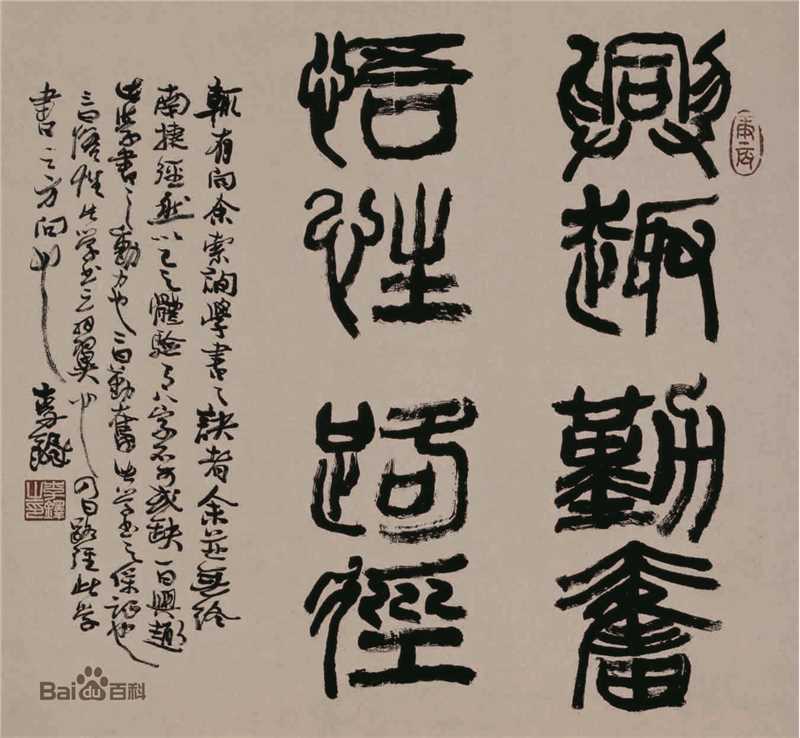 興趣勤奮
悟性路徑
輒有向余索詢學書之訣者余並無終
南捷徑然以己之體驗有八字不可或缺一曰興趣
此學書之動力也二曰勤奮此學書之保證也
三曰悟性此學書之羽翼也四曰路徑此學
書之方向也 李鐸
李鐸之印
Bai百科